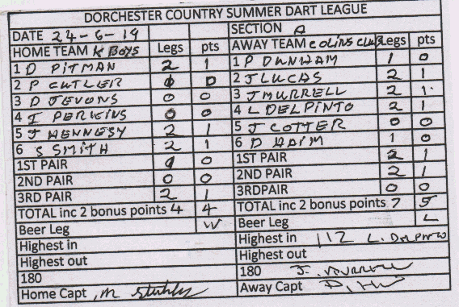 DORCHESTER COUNTRY SUMMER DART LEAGUE
DATE 24-6-19 SECTION A
HOME TEAM K BOYS Legs pts AWAY TEAM COLINS CLUB Legs pts
1 D PITMAN 2 1 1 P DUNHAM 1 0
2 P CUTLER 0 0 2 J LUCAS 2 1
3 D JEVONS 0 0 3 J MURRELL 2 1
4 I PERKINS 0 0 4 L DELPINTO 2 1
5 J HENNESY 2 1 5 J COTTER 0 0
6 S SMITH 2 1 6 D 1 0
1ST PAIR 0 1ST PAIR 2 1
2ND PAIR 0 0 2ND PAIR 2 1
3RD PAIR 2 1 3RDPAIR 0 0
TOTAL inc 2 bonus points 4 4 TOTAL inc 2 bonus points 7 5
Beer Leg W Beer Leg L
Highest in Highest in 112 L. DELPINTO
Highest out Highest out
180 180 J. MURRELL
Home Capt M Away Capt